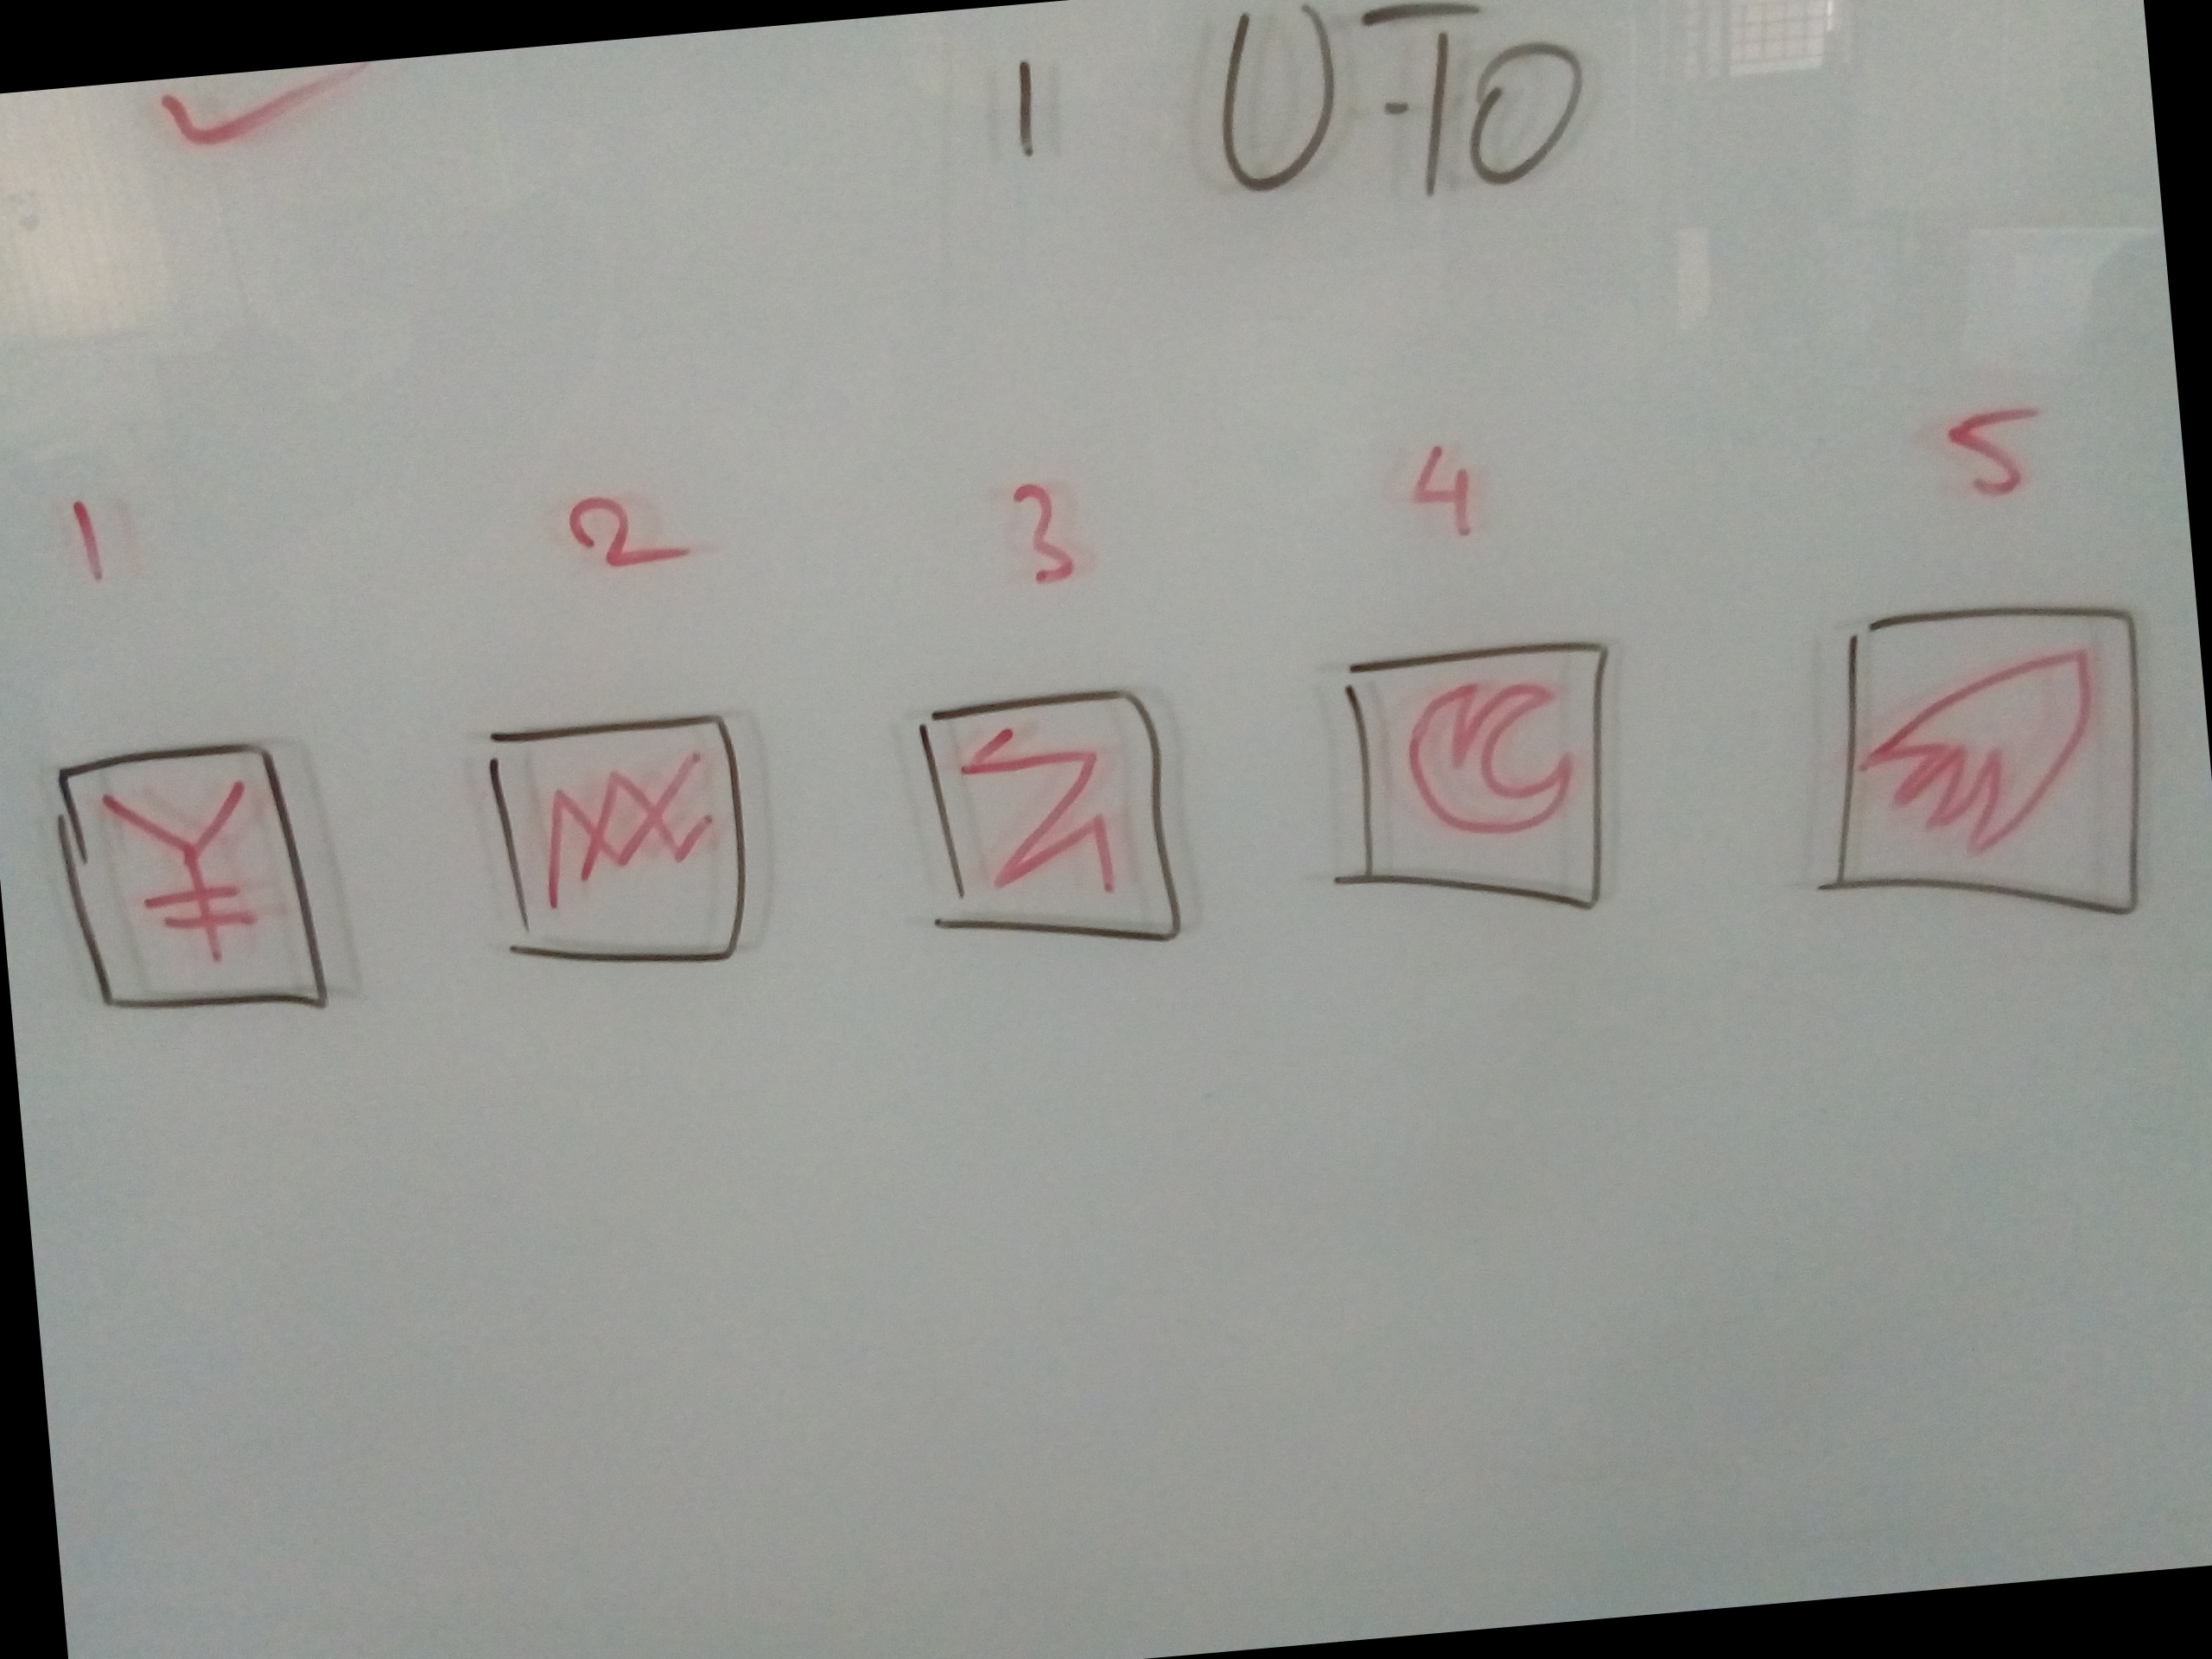 1 U-TO
1 2 3 4 5
¥